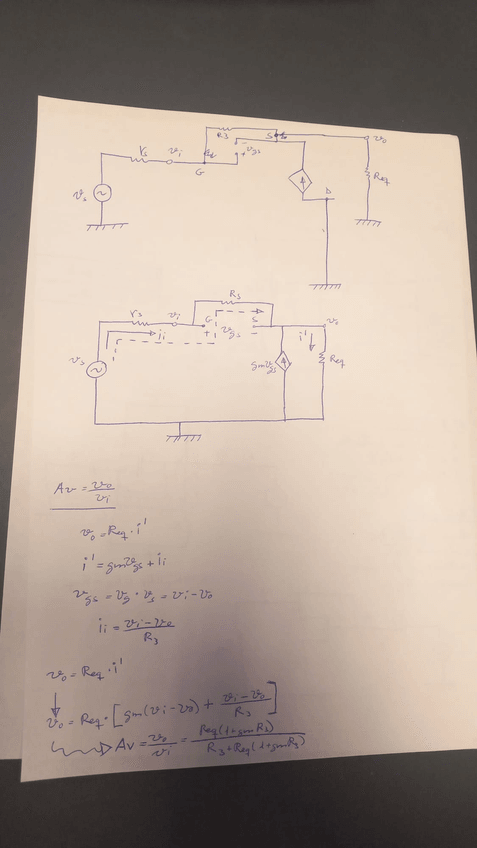 R3
S
vo
rs
vi
vgs
G
vs
Req
D
R3
rs
vi
G
S
vo
+
vgs
-
ii
i'
vs
gmvgs
Req
Av = vo/vi
vo = Req · i'
i' = gmvgs + ii
vgs = vg - vs = vi - vo
ii = (vi - vo)/R3
vo = Req · i'
vo = Req · [gm(vi - vo) + (vi - vo)/R3]
Av = vo/vi = Req(1+gmR3)/(R3+Req(1+gmR3))